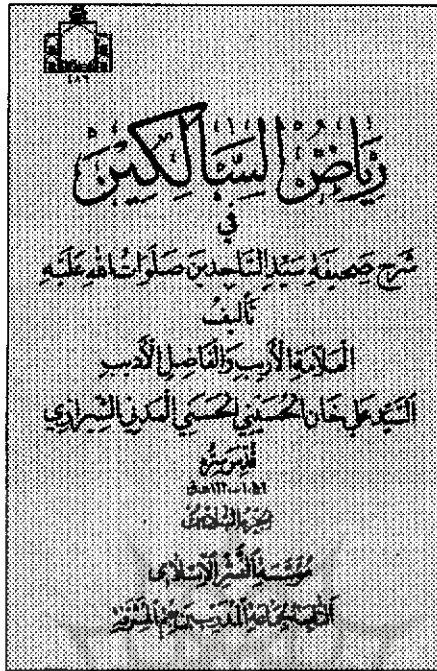 ٤٨٦
رِيَاضُ السَّالِكِينَ
في
شرح صحيفة سيد الساجدين صلوات الله عليه
تأليف
العلامة الأريب والفاضل الأديب
السيد علي خان الحسيني الحسني المدني الشيرازي
قدس سره
١٠٥٢-١١٢٠هـ
الجزء السادس
مؤسسة النشر الإسلامي
التابعة لجماعة المدرسين بقم المشرفة